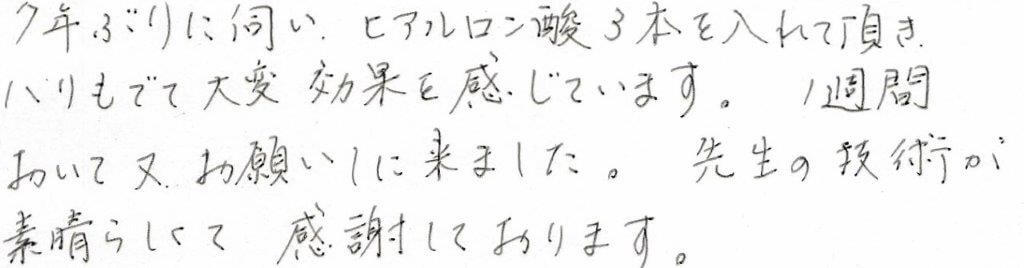 7年ぶりに伺い、ヒアルロン酸3本を入れて頂き
ハリもでて大変 効果を感じています。 1週間
おいて又、お願いしに来ました。 先生の技術が
素晴らしくて 感謝しております。